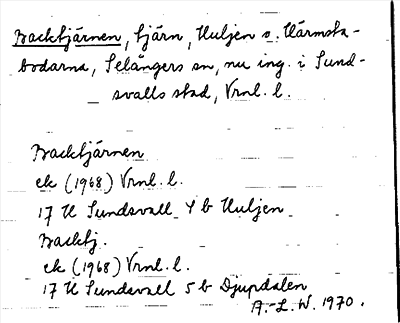 Backtjärnen, tjärn, Huljen o. Värmsta-
bodarna, Selångers sn, nu ing. i Sund-
svalls stad, Vrnl. l.
Backtjärnen
ek (1968) Vrnl. l.
17 H Sundsvall 4 b Huljen
Backtj.
ek (1968) Vrnl. l.
17 H Sundsvall 5 b Djupdalen
A.-L. W. 1970.